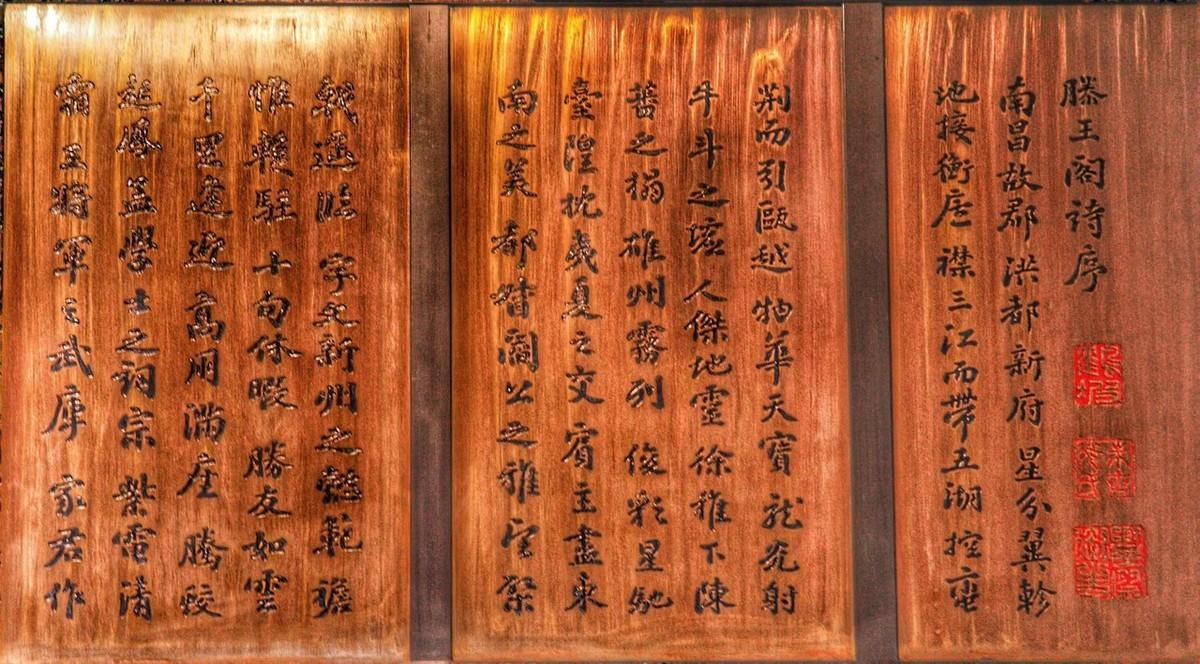 滕王閣詩序
南昌故郡洪都新府星分翼軫
地接衡庐襟三江而帶五湖控蠻
荊而引甌越物華天寶龍光射
牛斗之墟人傑地靈徐稚下陳
蕃之榻雄州霧列俊彩星馳
臺隍枕夷夏之交賓主盡東
南之美都督閻公之雅望棨
戟遙臨宇文新州之懿範襜
帷暫駐十旬休暇勝友如雲
千里逢迎高朋滿座騰蛟
起鳳孟學士之詞宗紫電清
霜王將軍之武庫家君作